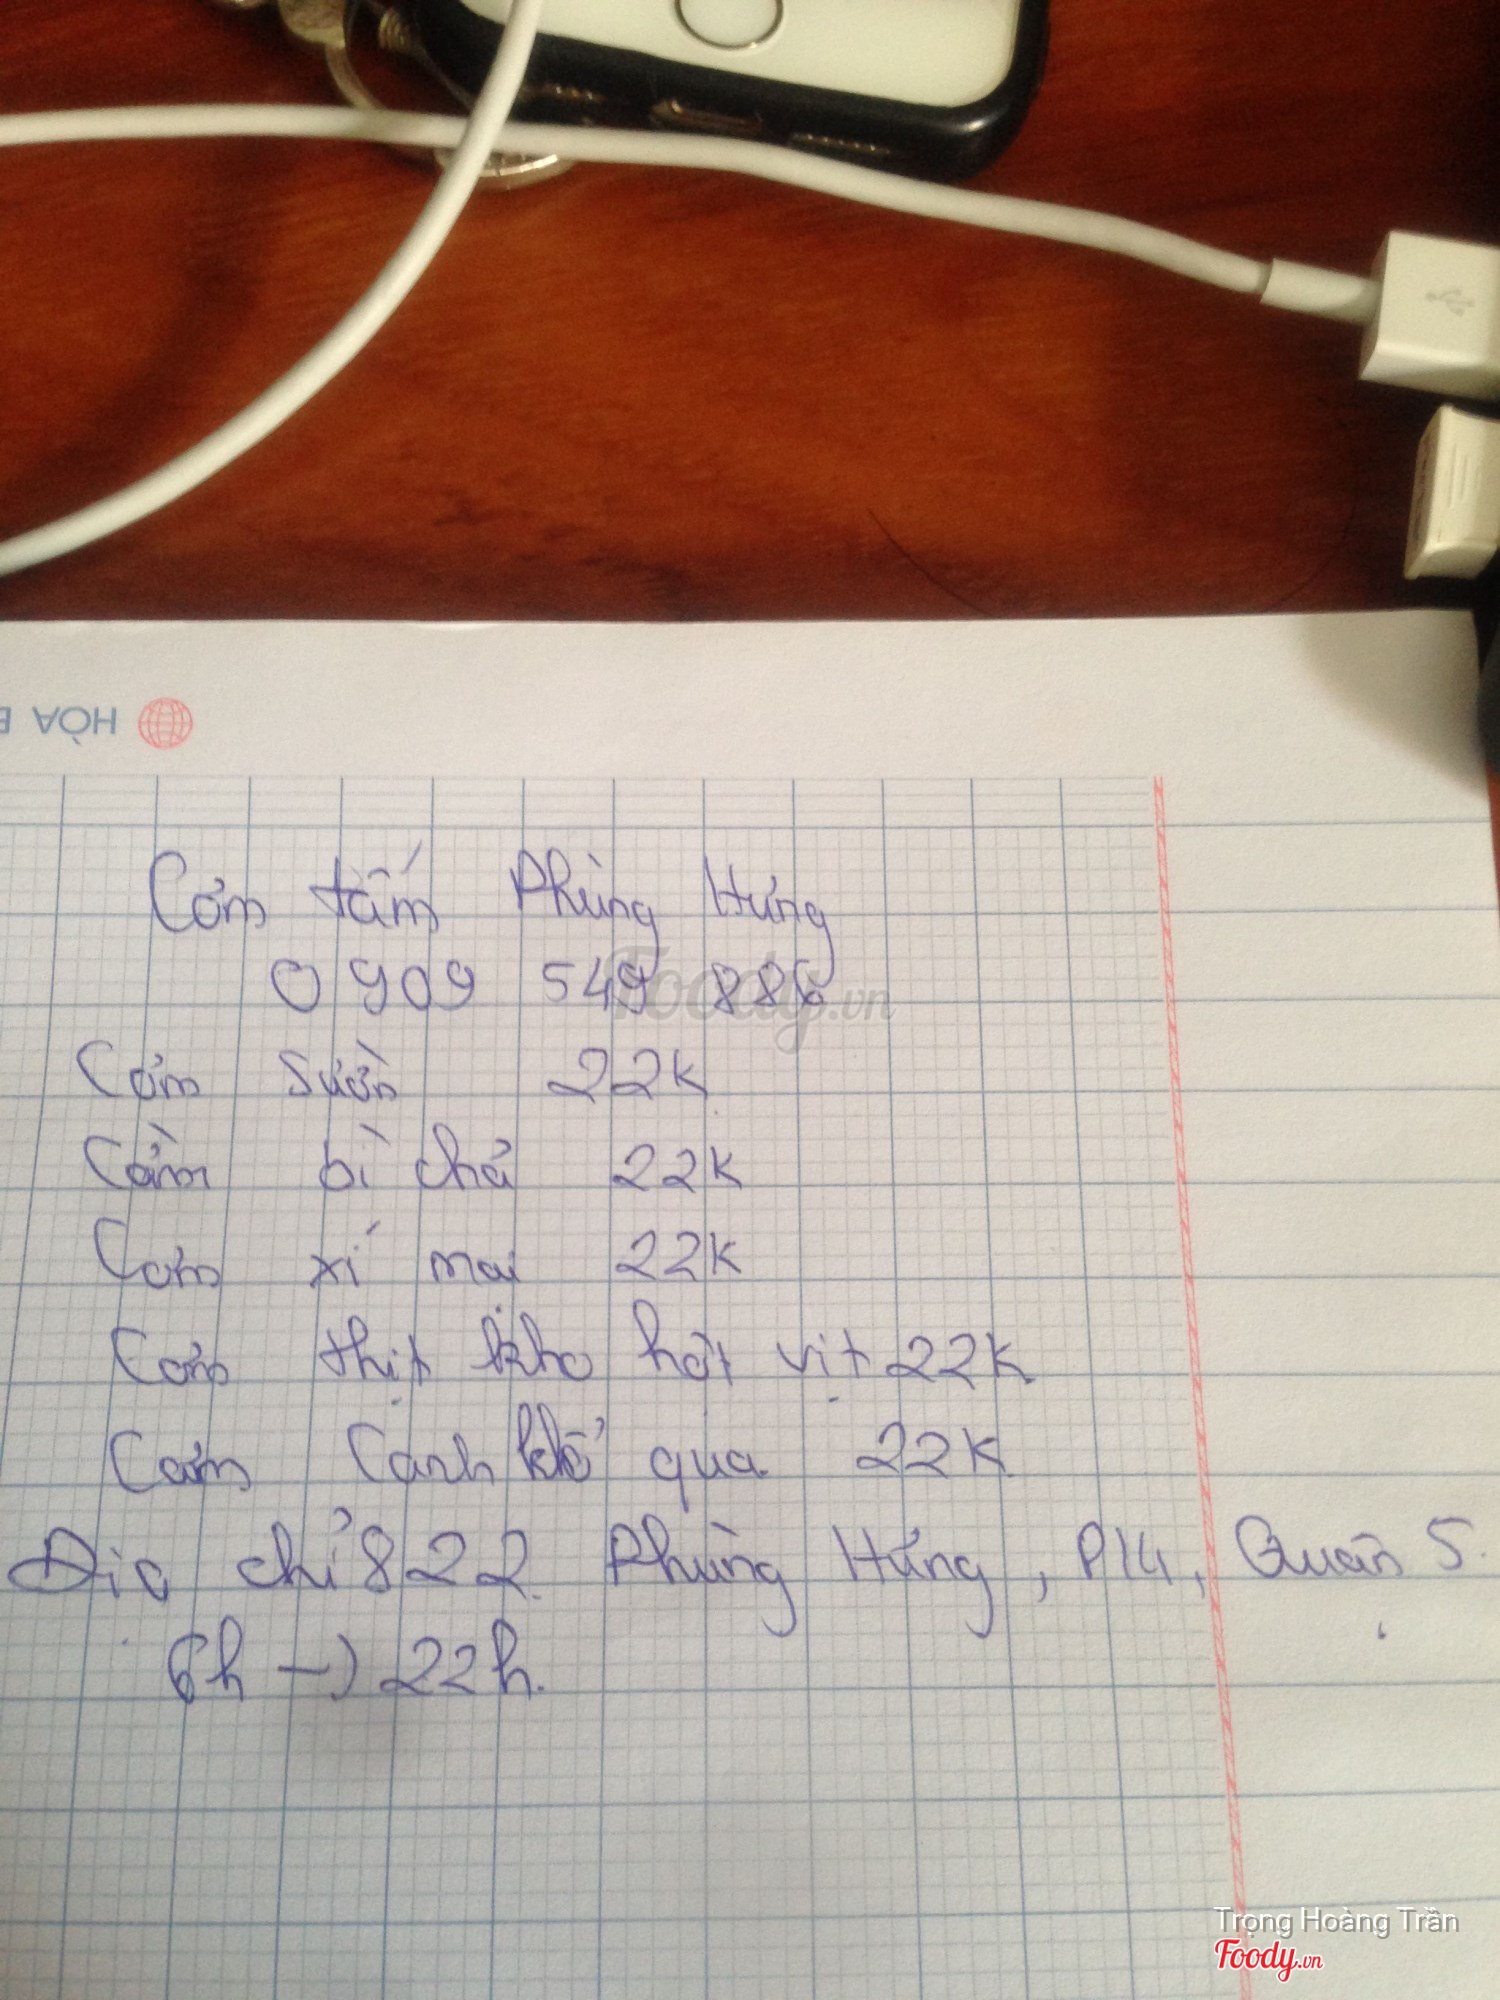 HÒA B
Cơm tấm Phùng Hưng
0909 549 886
Foody.vn
Cơm sườn 22K
Cơm bì chả 22K
Cơm xí mại 22K
Cơm thịt kho hột vịt 22K
Cơm Canh khổ qua 22K
Địa chỉ 822 Phùng Hưng, P14, Quận 5.
6h → 22h.
Trọng Hoàng Trần
Foody.vn